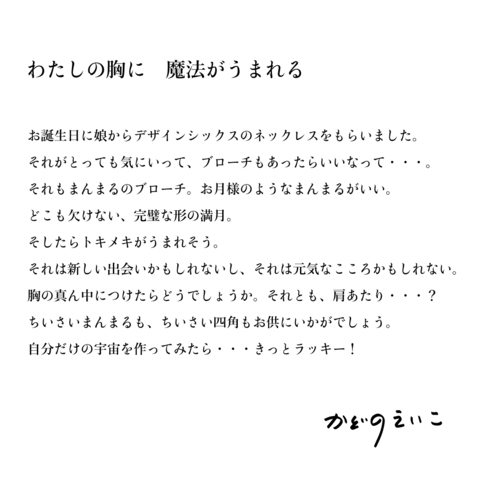 わたしの胸に　魔法がうまれる
お誕生日に娘からデザインシックスのネックレスをもらいました。
それがとっても気にいって、ブローチもあったらいいなって・・・。
それもまんまるのブローチ。お月様のようなまんまるがいい。
どこも欠けない、完璧な形の満月。
そしたらトキメキがうまれそう。
それは新しい出会いかもしれないし、それは元気なこころかもしれない。
胸の真ん中につけたらどうでしょうか。それとも、肩あたり・・・？
ちいさいまんまるも、ちいさい四角もお供にいかがでしょう。
自分だけの宇宙を作ってみたら・・・きっとラッキー！
かどのえいこ